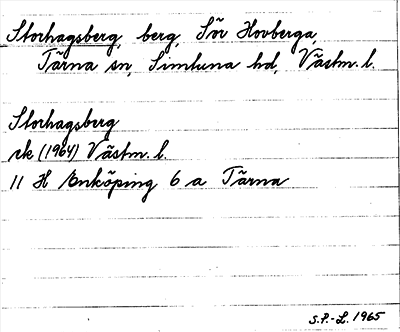 Storhagsberg, berg, Sör Hovberga,
Tärna sn, Simtuna hd, Västm. l.
Storhagsberg
rk (1964) Västm. l.
11 H Enköping 6 a Tärna
S.P.-L. 1965